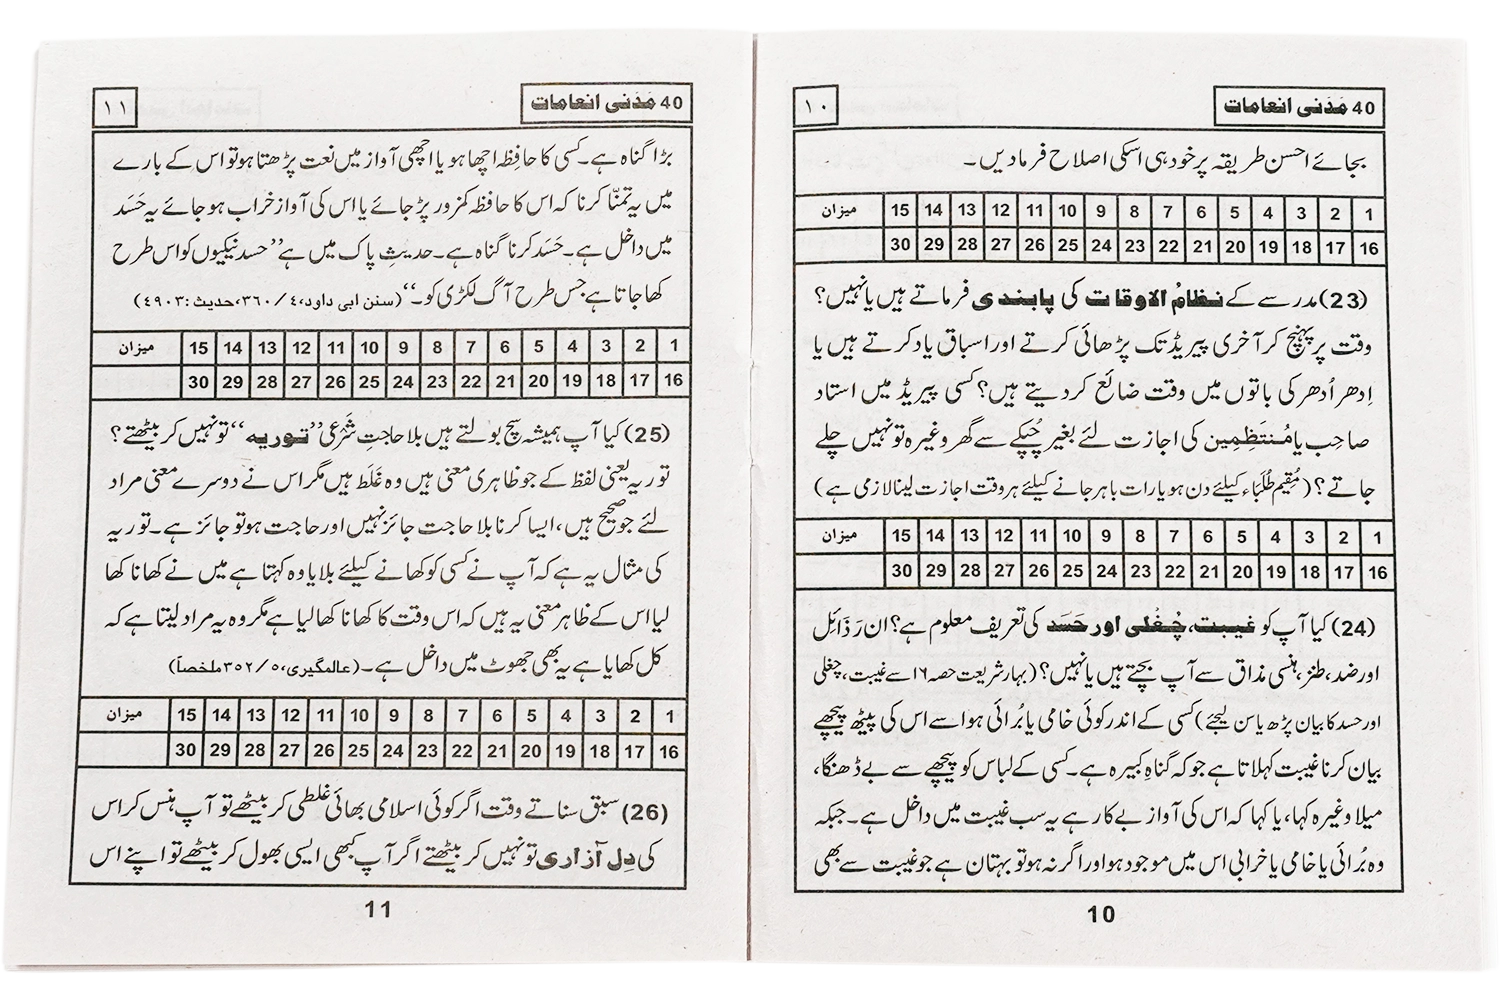 40 مَدَنی انعامات
۱۰
بجائے احسن طریقہ پر خود ہی اسکی اصلاح فرمادیں۔
1 2 3 4 5 6 7 8 9 10 11 12 13 14 15 میزان
16 17 18 19 20 21 22 23 24 25 26 27 28 29 30
(23) مدرسے کے نظامُ الاوقات کی پابندی فرماتے ہیں یا نہیں؟
وقت پر پہنچ کر آخری پیریڈ تک پڑھائی کرتے اور اسباق یاد کرتے ہیں یا
اِدھر اُدھر کی باتوں میں وقت ضائع کر دیتے ہیں؟ کسی پیریڈ میں استاد
صاحِب یا مُنتَظِمِین کی اجازت لئے بغیر چُپکے سے گھر وغیرہ تو نہیں چلے
جاتے؟ (مُقیم طُلَباء کیلئے دن ہو یا رات باہر جانے کیلئے ہر وقت اجازت لینا لازمی ہے)
1 2 3 4 5 6 7 8 9 10 11 12 13 14 15 میزان
16 17 18 19 20 21 22 23 24 25 26 27 28 29 30
(24) کیا آپ کو غیبت، چُغلی اور حَسَد کی تعریف معلوم ہے؟ ان رَذائِل
اور ضد، طنز، ہنسی مذاق سے آپ بچتے ہیں یا نہیں؟ (بہار شریعت حصہ ۱۶ سے غیبت، چغلی
اور حسد کا بیان پڑھ یا سن لیجئے) کسی کے اندر کوئی خامی یا بُرائی ہو اسے اس کی پیٹھ پیچھے
بیان کرنا غیبت کہلاتا ہے جو کہ گناہِ کبیرہ ہے۔ کسی کے لباس کو پیچھے سے بے ڈھنگا،
میلا وغیرہ کہا، یا کہا کہ اس کی آواز بے کار ہے یہ سب غیبت میں داخل ہے۔ جبکہ
وہ بُرائی یا خامی یا خرابی اس میں موجود ہو اور اگر نہ ہو تو بہتان ہے جو غیبت سے بھی
10
40 مَدَنی انعامات
۱۱
بڑا گناہ ہے۔ کسی کا حافِظہ اچھا ہو یا اچھی آواز میں نعت پڑھتا ہو تو اس کے بارے
میں یہ تمنّا کرنا کہ اس کا حافظہ کمزور پڑ جائے یا اس کی آواز خراب ہو جائے یہ حَسَد
میں داخل ہے۔ حَسَد کرنا گناہ ہے۔ حدیثِ پاک میں ہے ”حسد نیکیوں کو اس طرح
کھا جاتا ہے جس طرح آگ لکڑی کو۔“ (سنن ابی داود، ۴/ ۳۶۰، حدیث: ۴۹۰۳)
1 2 3 4 5 6 7 8 9 10 11 12 13 14 15 میزان
16 17 18 19 20 21 22 23 24 25 26 27 28 29 30
(25) کیا آپ ہمیشہ سچ بولتے ہیں بلا حاجتِ شَرعی ”توریہ“ تو نہیں کر بیٹھتے؟
توریہ یعنی لفظ کے جو ظاہری معنی ہیں وہ غَلَط ہیں مگر اس نے دوسرے معنی مراد
لئے جو صحیح ہیں، ایسا کرنا بلا حاجت جائز نہیں اور حاجت ہو تو جائز ہے۔ توریہ
کی مثال یہ ہے کہ آپ نے کسی کو کھانے کیلئے بلایا وہ کہتا ہے میں نے کھانا کھا
لیا اس کے ظاہر معنی یہ ہیں کہ اس وقت کا کھانا کھا لیا ہے مگر وہ یہ مراد لیتا ہے کہ
کل کھایا ہے یہ بھی جھوٹ میں داخل ہے۔ (عالمگیری، ۵/ ۳۵۲ ملخصاً)
1 2 3 4 5 6 7 8 9 10 11 12 13 14 15 میزان
16 17 18 19 20 21 22 23 24 25 26 27 28 29 30
(26) سبق سناتے وقت اگر کوئی اسلامی بھائی غلطی کر بیٹھے تو آپ ہنس کر اس
کی دِل آزاری تو نہیں کر بیٹھتے اگر آپ کبھی ایسی بھول کر بیٹھے تو اپنے اس
11